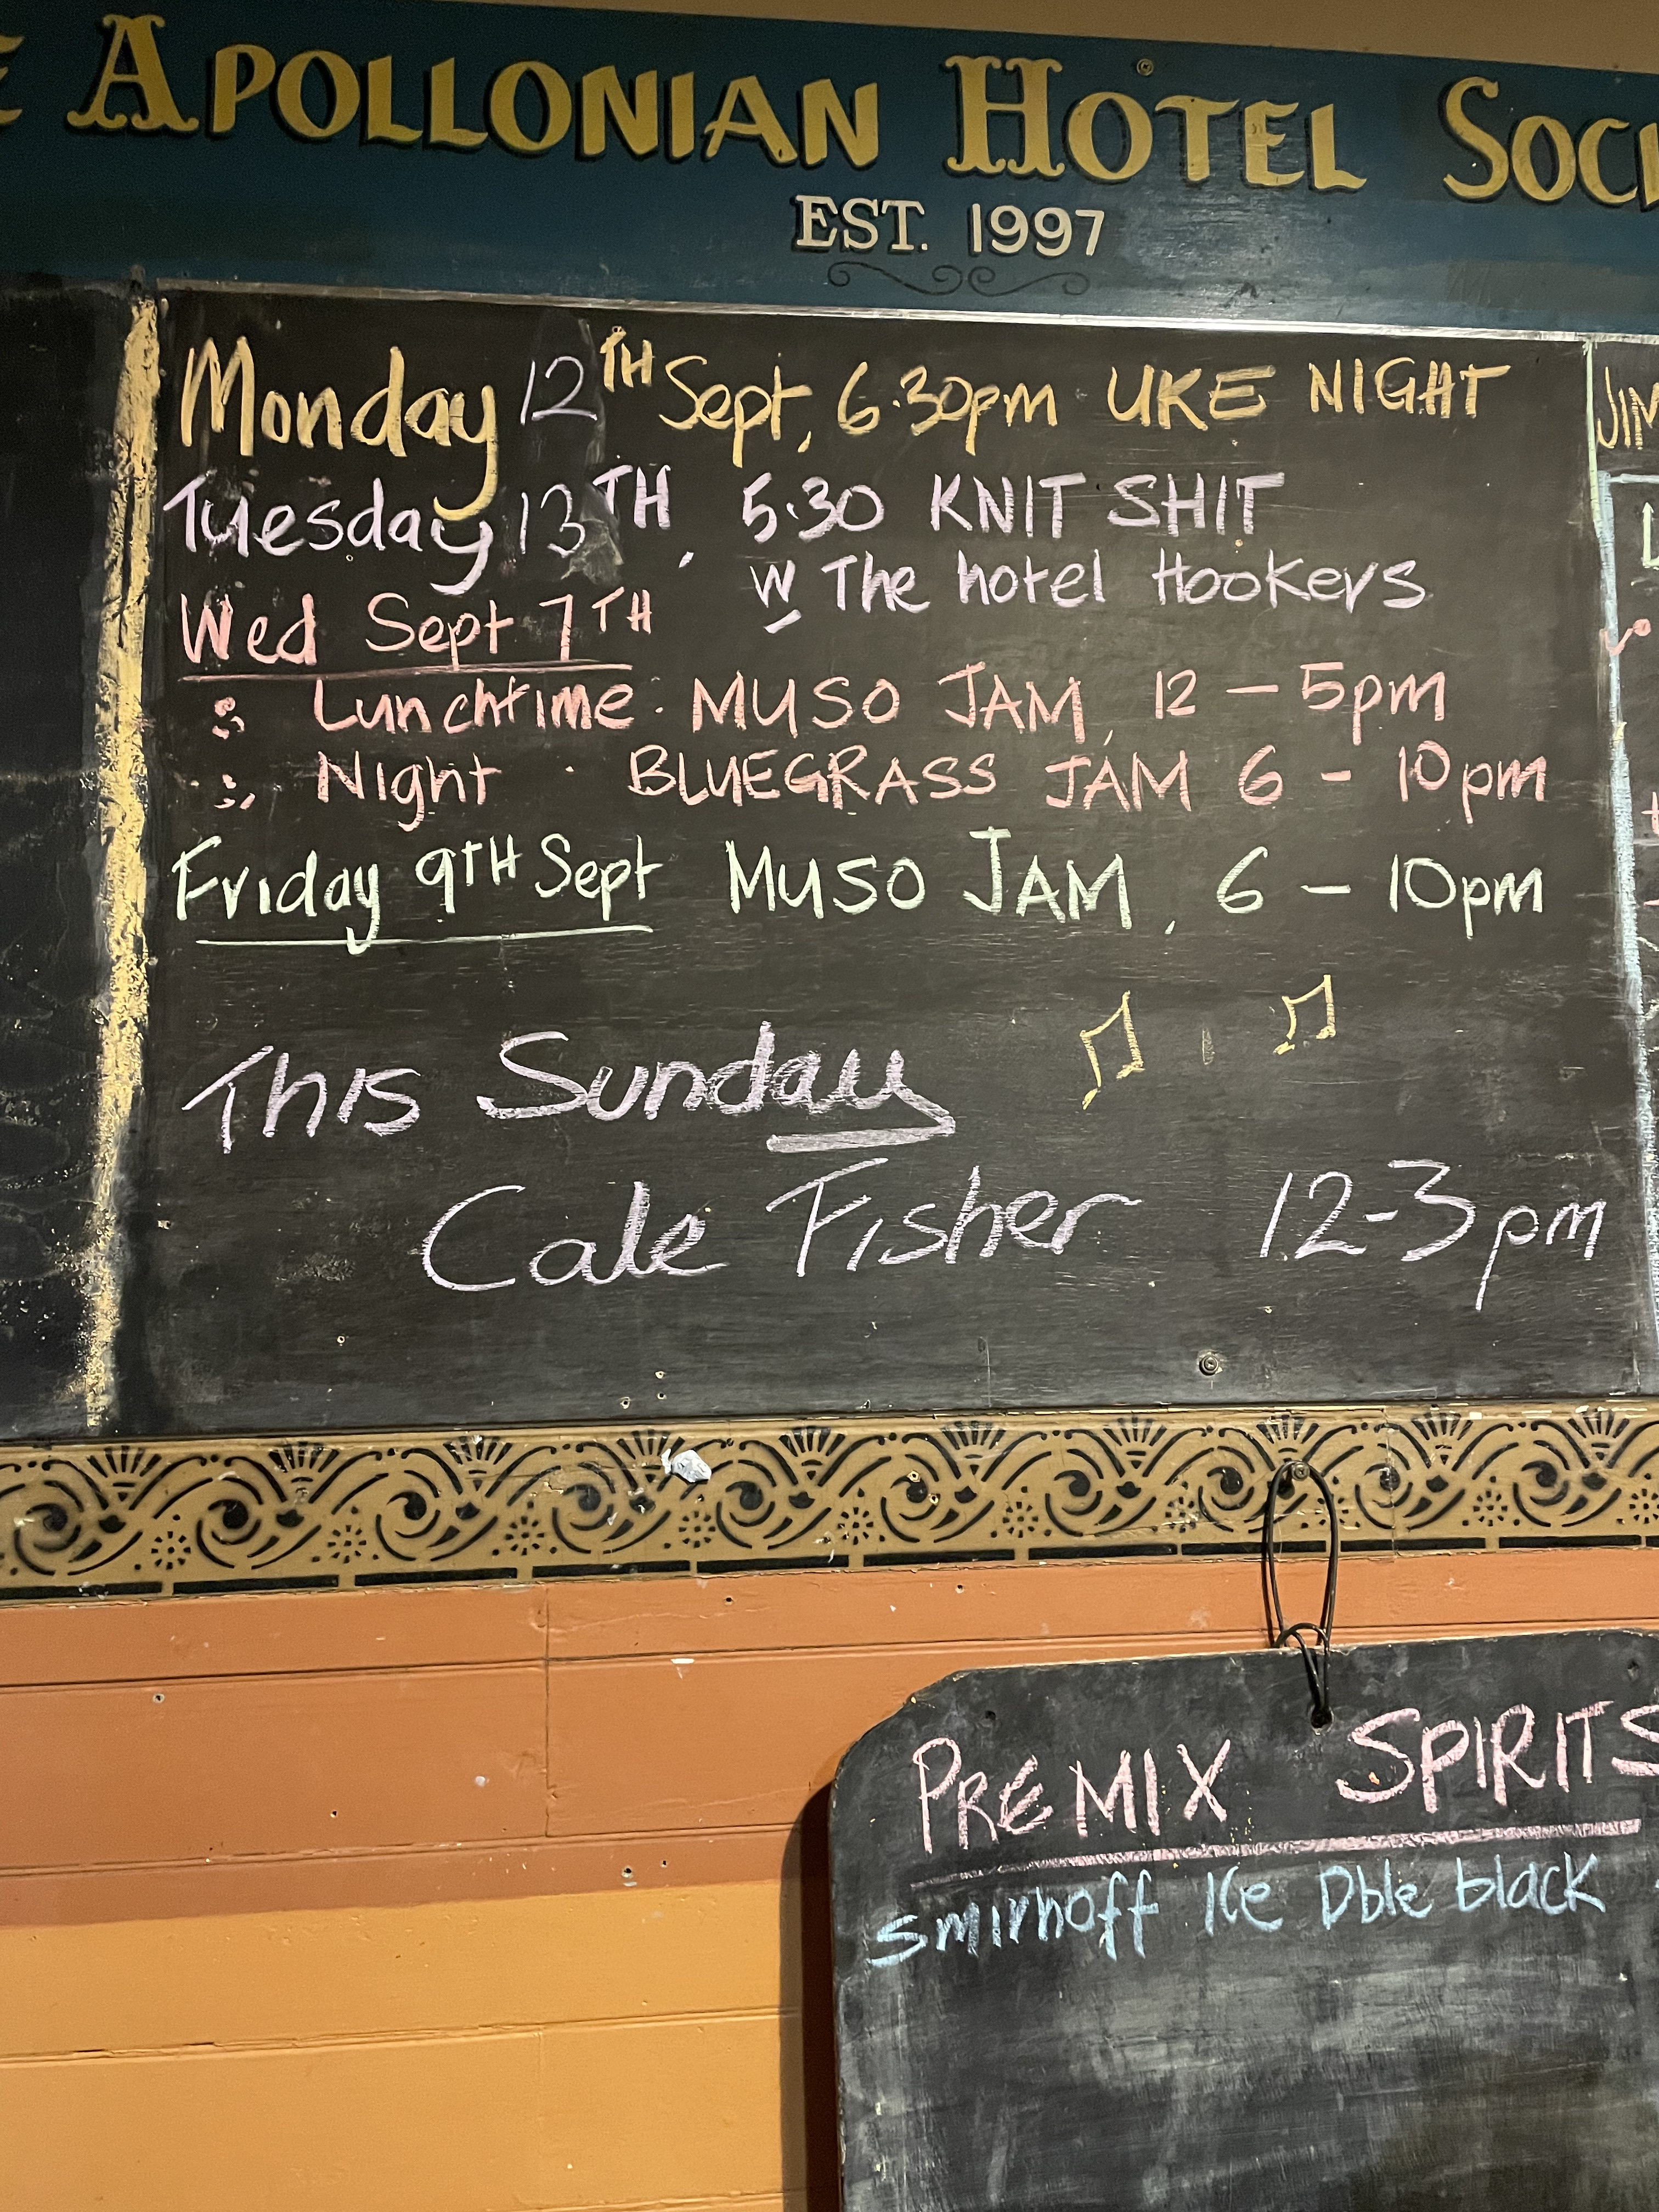 APOLLONIAN HOTEL
EST. 1997
Monday 12TH Sept, 6.30pm UKE NIGHT
Tuesday 13TH, 5.30 KNIT SHIT
W The hotel Hookers
Wed Sept 7TH
: Lunchtime. MUSO JAM, 12 - 5pm
: Night . BLUEGRASS JAM 6 - 10pm
Friday 9TH Sept MUSO JAM, 6 - 10pm
This Sunday
Cale Fisher 12-3pm
JIM
PREMIX SPIRITS
Smirnoff Ice Dble black